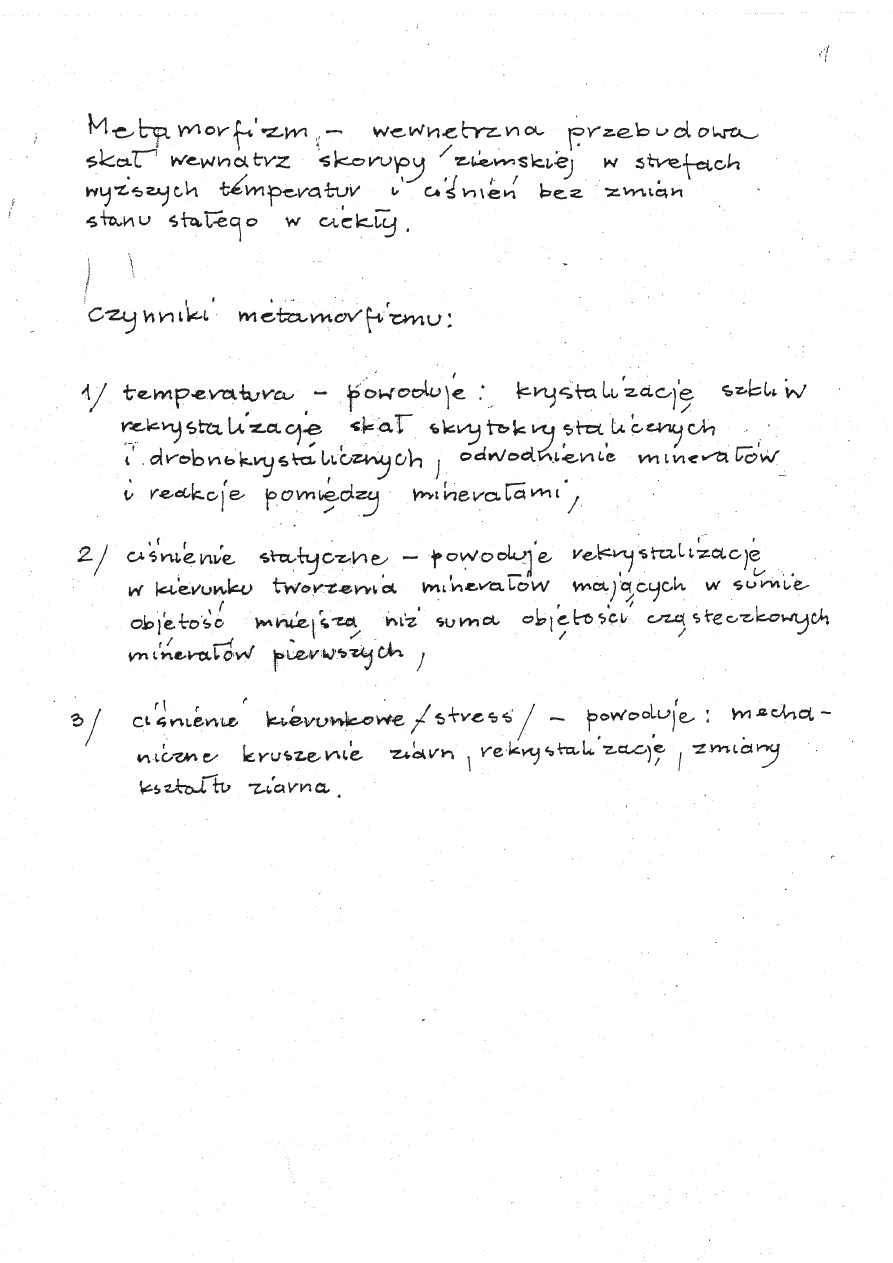 1
Metamorfizm - wewnętrzna przebudowa
skał wewnątrz skorupy ziemskiej w strefach
wyższych temperatur i ciśnień bez zmian
stanu stałego w ciekły.
Czynniki metamorfizmu:
1/ temperatura - powoduje: krystalizację szkliw
rekrystalizację skał skrytokrystalicznych
i drobnokrystalicznych, odwodnienie minerałów
i reakcje pomiędzy minerałami,
2/ ciśnienie statyczne - powoduje rekrystalizację
w kierunku tworzenia minerałów mających w sumie
objętość mniejszą niż suma objętości cząsteczkowych
minerałów pierwszych,
3/ ciśnienie kierunkowe /stress/ - powoduje: mecha-
niczne kruszenie ziarn, rekrystalizację, zmiany
kształtu ziarna.